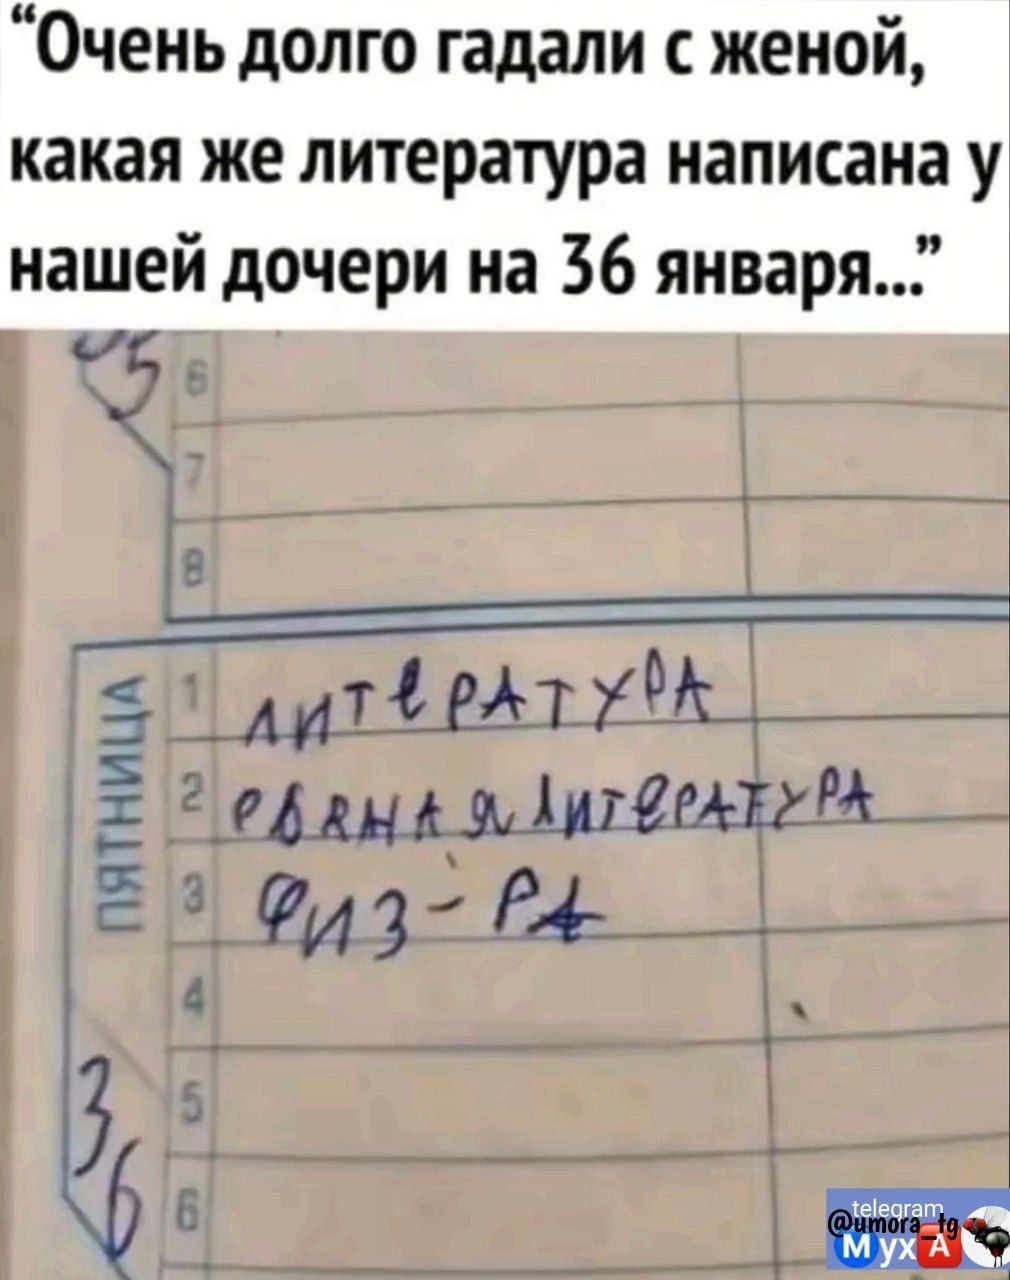 “Очень долго гадали с женой,
какая же литература написана у
нашей дочери на 36 января...”
5
6
7
8
ПЯТНИЦА
1 ЛИТЕРАТУРА
2 ЛИТЕРАТУРА
3 ФИЗ-РА
4
5
6
36
telegram
@umora_tg
МухА